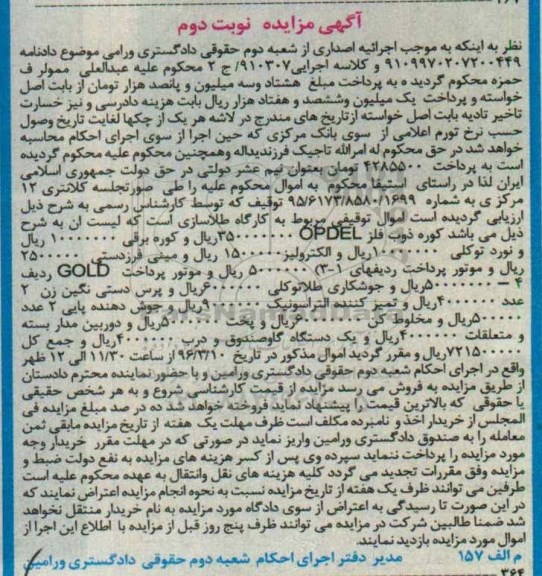 آگهی مزایده نوبت دوم
نظر به اینکه به موجب اجرائیه اصداری از شعبه دوم حقوقی دادگستری ورامی موضوع دادنامه
۹۱۰۹۹۷۰۲۰۷۲۰۰۴۴۹ و کلاسه اجرایی۹۱۰۳۰۷/ ج ۲ محکوم علیه عبدالعلی ممولر ف
حمزه محکوم گردیده به پرداخت مبلغ هشتاد وسه میلیون و پانصد هزار تومان از بابت اصل
خواسته و پرداخت یک میلیون وششصد و هفتاد هزار ریال بابت هزینه دادرسی و نیز خسارت
تاخیر تادیه بابت اصل خواسته ازتاریخ های مندرج در لاشه هر یک از چکها لغایت تاریخ وصول
حسب نرخ تورم اعلامی از سوی بانک مرکزی که حین اجرا از سوی اجرای احکام محاسبه
خواهد شد در حق محکوم له امرالله تاجیک فرزندیداله وهمچنین محکوم علیه محکوم گردیده
است به پرداخت ۴۲۸۵۵۰۰ تومان بعنوان نیم عشر دولتی در حق دولت جمهوری اسلامی
ایران لذا در راستای استیفا محکوم به اموال محکوم علیه را طی صورتجلسه کلانتری ۱۲
مرکزی به شماره ۹۵/۶۱۷۳/۸۵۸۰/۱۶۹۹ توقیف که توسط کارشناس رسمی به شرح ذیل
ارزیابی گردیده است اموال توقیفی مربوط به کارگاه طلاسازی است که لیست ان به شرح
ذیل می باشد کوره ذوب فلز OPDEL ریال و کوره برقی ریال
و نورد توکلی ریال و الکترولیز ریال و مینی فرزدستی
ریال و موتور پرداخت ردیفهای (۳-۱) ریال و موتور پرداخت GOLD ردیف
۴ – ریال و جوشکاری طلاتوکلی ریال و پرس دستی نگین زن ۲
عدد ریال و تمیز کننده التراسونیک ریال و جوش دهنده پایی ۲ عدد
ریال و مخلوط کن ریال و پخت ریال و دوربین مدار بسته
و متعلقات ریال و یک دستگاه گاوصندوق و درب ریال و جمع کل
ریال و مقرر گردید اموال مذکور در تاریخ ۹۶/۳/۱۰ از ساعت ۱۱/۳۰ الی ۱۲ ظهر
واقع در اجرای احکام شعبه دوم حقوقی دادگستری ورامین و با حضور نماینده محترم دادستان
از طریق مزایده به فروش می رسد مزایده از قیمت کارشناسی شروع و به هر شخص حقیقی
یا حقوقی که بالاترین قیمت را پیشنهاد نماید فروخته خواهد شد ده در صد مبلغ مزایده فی
المجلس از خریدار اخذ و نامبرده مکلف است ظرف مهلت یک هفته از تاریخ مزایده مابقی ثمن
معامله را به صندوق دادگستری ورامین واریز نماید در صورتی که در مهلت مقرر خریدار وجه
مورد مزایده را پرداخت ننماید سپرده وی پس از کسر هزینه های مزایده به نفع دولت ضبط و
مزایده وفق مقررات تجدید می گردد کلیه هزینه های نقل وانتقال به عهده محکوم علیه است
طرفین می توانند ظرف یک هفته از تاریخ مزایده نسبت به نحوه انجام مزایده اعتراض نمایند که
در این صورت تا رسیدگی به اعتراض از سوی دادگاه مورد مزایده به نام خریدار منتقل نخواهد
شد ضمنا طالبین شرکت در مزایده می توانند ظرف پنج روز قبل از مزایده با اطلاع این اجرا از
اموال مورد مزایده بازدید نمایند.
م الف ۱۵۷ مدیر دفتر اجرای احکام شعبه دوم حقوقی دادگستری ورامین
۳۶۴